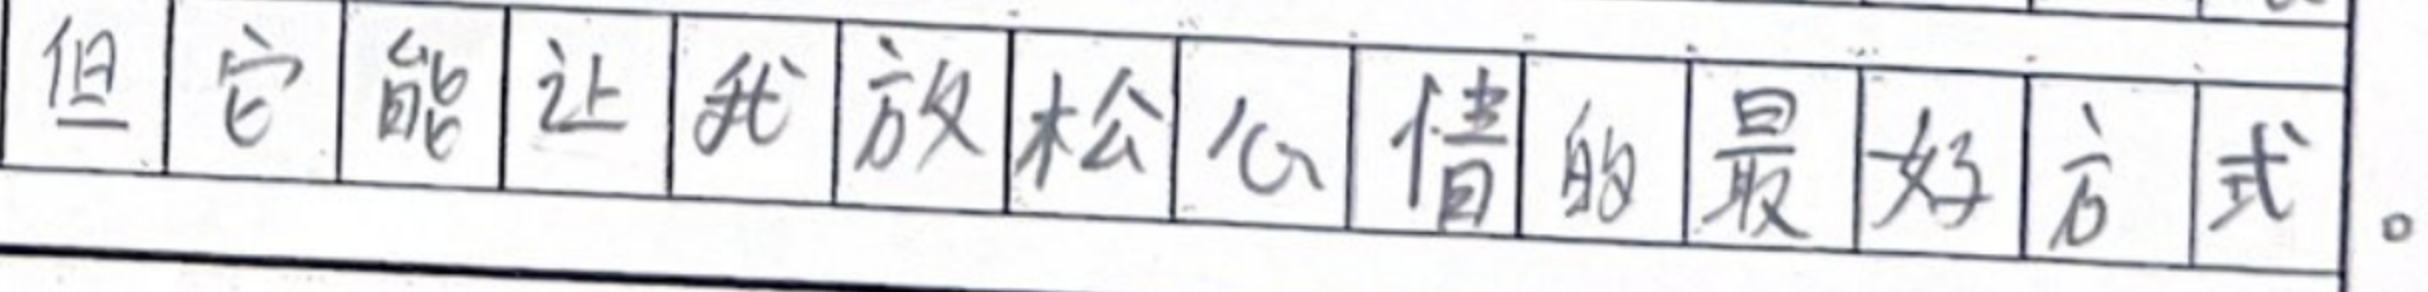 但它能让我放松心情的最好方式。